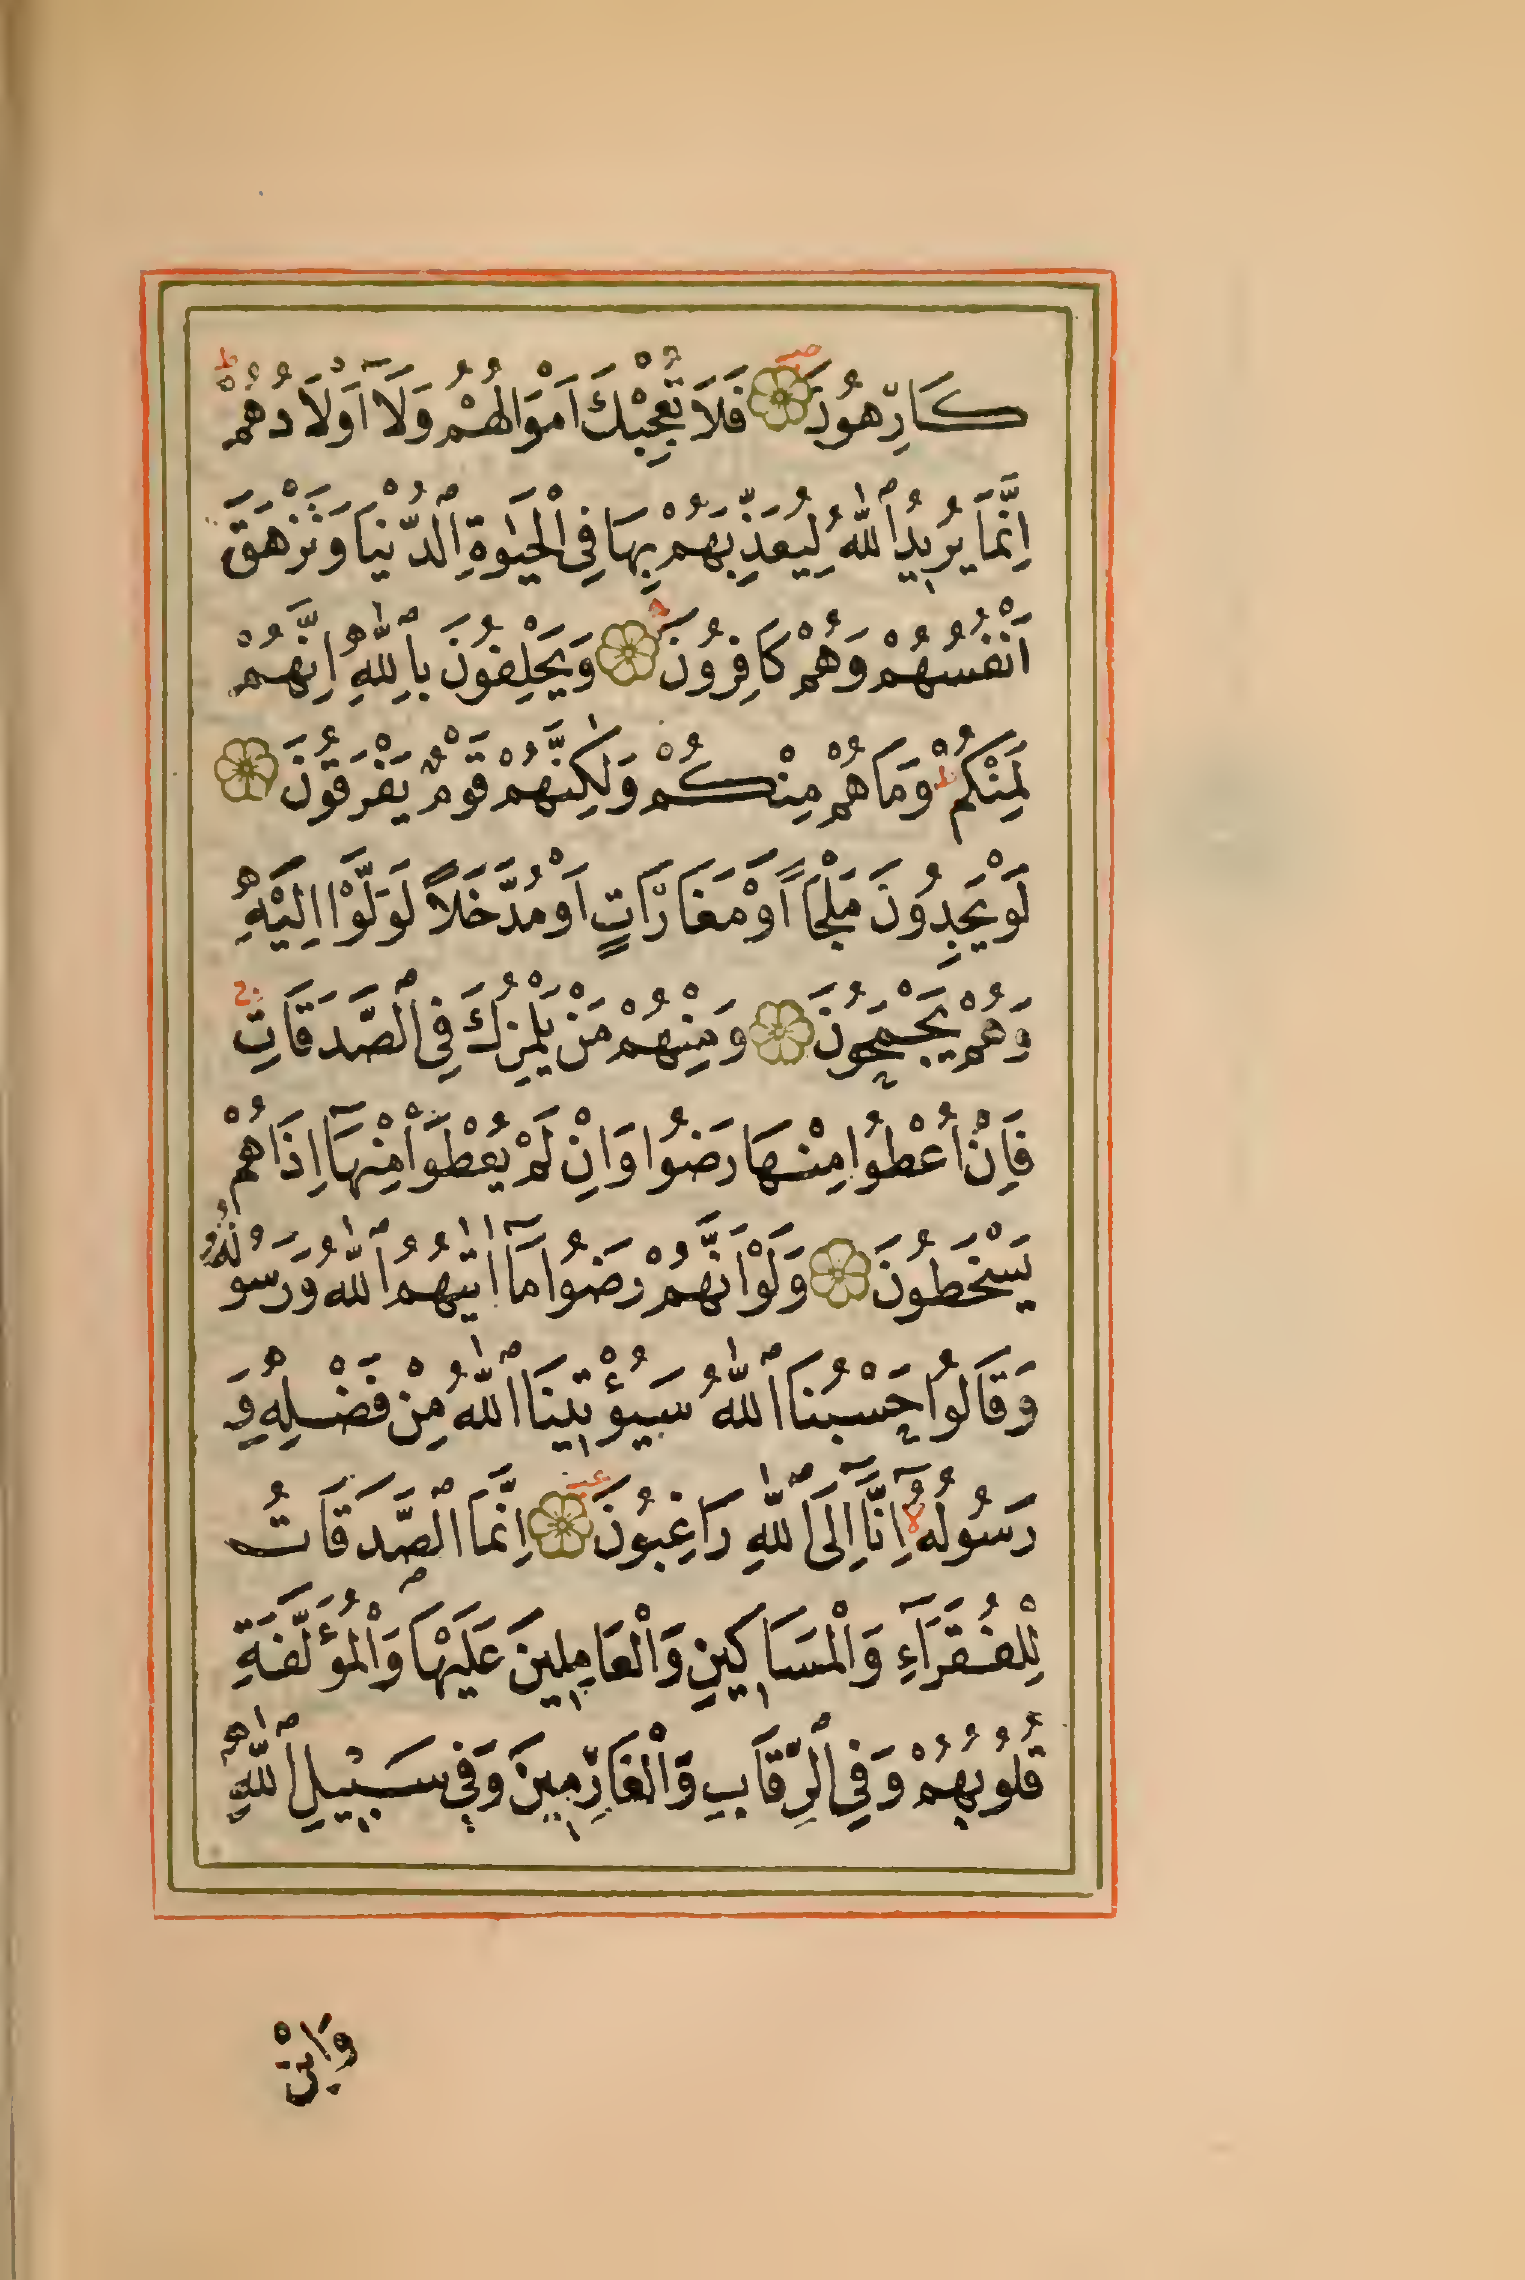 كَارِهُونَ فَلَا تُعْجِبْكَ اَمْوَالُهُمْ وَلَآ اَوْلَادُهُمْ ط
اِنَّمَا يُرِيدُ ٱللّٰهُ لِيُعَذِّبَهُمْ بِهَا فِى الْحَيٰوةِ ٱلدُّنْيَا وَتَزْهَقَ
اَنْفُسُهُمْ وَهُمْ كَافِرُونَ وَيَحْلِفُونَ بِاللّٰهِ اِنَّهُمْ
لَمِنْكُمْ ط وَمَا هُمْ مِنْكُمْ وَلٰكِنَّهُمْ قَوْمٌ يَفْرَقُونَ
لَوْ يَجِدُونَ مَلْجَاً اَوْ مَغَارَاتٍ اَوْ مُدَّخَلاً لَوَلَّوْا اِلَيْهِ
وَهُمْ يَجْمَحُونَ وَمِنْهُمْ مَنْ يَلْمِزُكَ فِى ٱلصَّدَقَاتِ ج
فَاِنْ اُعْطُوا مِنْهَا رَضُوا وَاِنْ لَمْ يُعْطَوْا مِنْهَآ اِذَا هُمْ
يَسْخَطُونَ وَلَوْ اَنَّهُمْ رَضُوا مَآ اٰتٰيهُمُ ٱللّٰهُ وَرَسُولُهُ
وَقَالُوا حَسْبُنَا ٱللّٰهُ سَيُؤْتِينَا ٱللّٰهُ مِنْ فَضْلِهِ وَ
رَسُولُهُ لا اِنَّآ اِلَى ٱللّٰهِ رَاغِبُونَ اِنَّمَا ٱلصَّدَقَاتُ
لِلْفُقَرَآءِ وَالْمَسَاكِينِ وَالْعَامِلِينَ عَلَيْهَا وَالْمُؤَلَّفَةِ
قُلُوبُهُمْ وَفِى ٱلرِّقَابِ وَالْغَارِمِينَ وَفِى سَبِيلِ ٱللّٰهِ
وَابْنِ